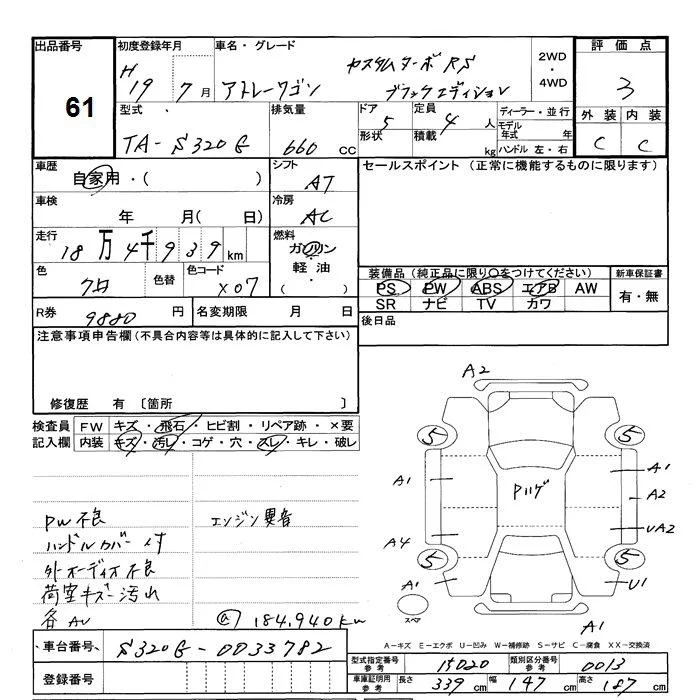 出品番号 初度登録年月 車名・グレード 2WD・4WD 評価点
61
H19年7月 アトレーワゴン カスタムターボRS ブラックエディション 3
型式 排気量 ドア形状 定員積載 ディーラー・並行 モデル年式 年 ハンドル 左・右 外装 内装
TA-S320G 660cc 5 4人 kg C C
車歴 自家用・( ) シフト AT
セールスポイント(正常に機能するものに限ります)
車検 年 月( 日) 冷房 AC
走行 18万4千939km 燃料 ガソリン・軽油・( )
色 クロ 色替 色コード X07
装備品(純正品に限り○をつけてください) 新車保証書
PS PW ABS エアB AW 有・無
SR ナビ TV カワ
R券 9880円 名変期限 月 日 後日品
注意事項申告欄(不具合内容等は具体的に記入して下さい)
修復歴 有〔箇所 〕
検査員記入欄 FW キズ・飛石・ヒビ割・リペア跡・×要
内装 キズ・汚レ・コゲ・穴・スレ・キレ・破レ
PW不良 エンジン異音
ハンドルカバー付
外オーディオ不良
荷室キズ汚レ
各AU
@184,940km
A2
5 5
A1 A1
Pハゲ A2
A4 UA2
5 5
A1 U1
スペア A1
A-キズ E-エクボ U-凹み W-補修跡 S-サビ C-腐食 XX-交換済
車台番号 S320G-0033782
登録番号
型式指定番号参考 15020 類別区分番号参考 0013
車庫証明用参考 長さ 339cm 幅 147cm 高さ 187cm